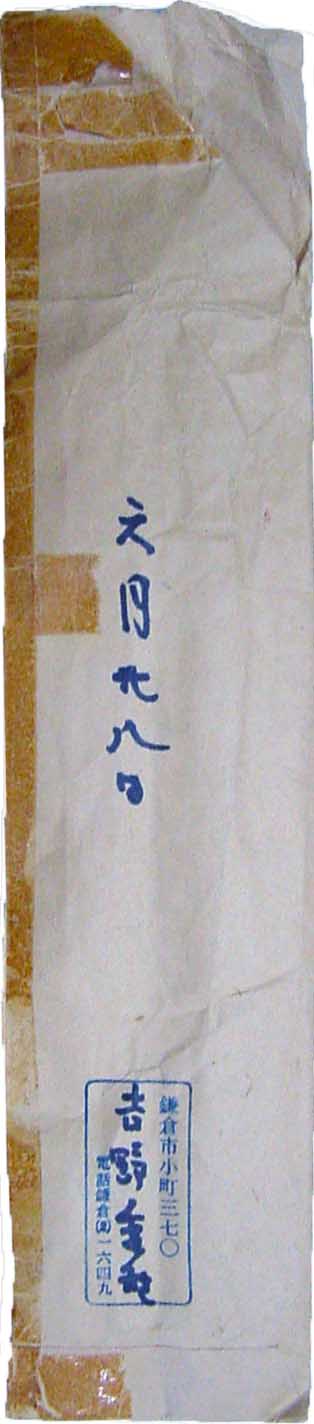 六月廿八日
鎌倉市小町三七〇
吉野秀雄
電話鎌倉(2)一六四九